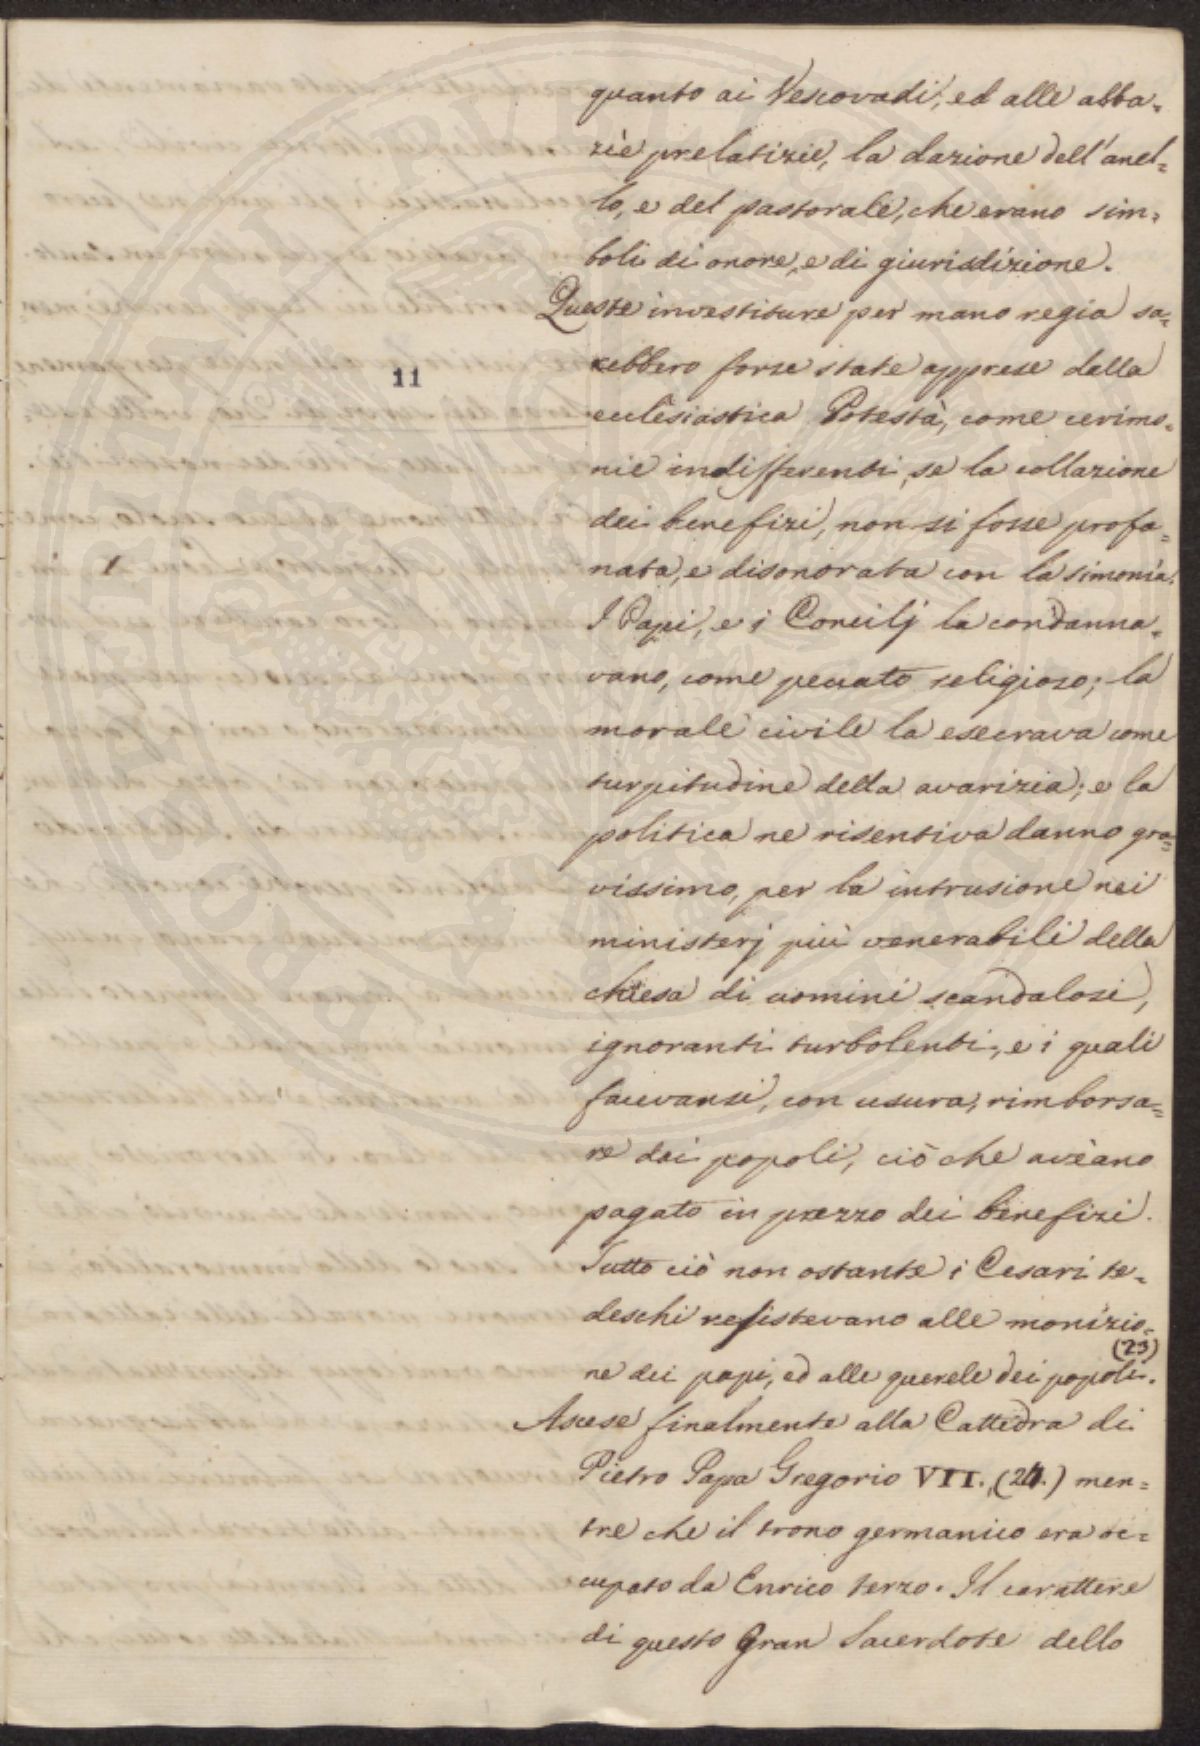 quanto ai Vescovadi, ed alle abba=
zie prelatizie, la dazione dell'anel=
lo, e del pastorale, che erano sim=
boli di onore, e di giurisdizione.
Queste investiture per mano regia sa=
rebbero forse state apprese dalla
11
ecclesiastica Potestà, come cerimo=
nie indifferenti, se la collazione
dei benefizi, non si fosse profa=
nata, e disonorata con la simonia.
I Papi, e i Concilj la condanna=
vano, come peccato religioso; la
morale civile la esecrava come
turpitudine della avarizia; e la
politica ne risentiva danno gra=
vissimo, per la intrusione nei
ministerj più venerabili della
chiesa di uomini scandalosi,
ignoranti turbolenti, e i quali
facevansi, con usura, rimborsa=
re dai popoli, ciò che avèano
pagato in prezzo dei benefizi.
Tutto ciò non ostante i Cesari te=
deschi resistevano alle monizio=
ne dei papi, ed alle querele dei popoli. (23)
Ascese finalmente alla Cattedra di
Pietro Papa Gregorio VII. (24.) men=
tre che il trono germanico era oc=
cupato da Enrico terzo. Il carattere
di questo Gran Sacerdote dello